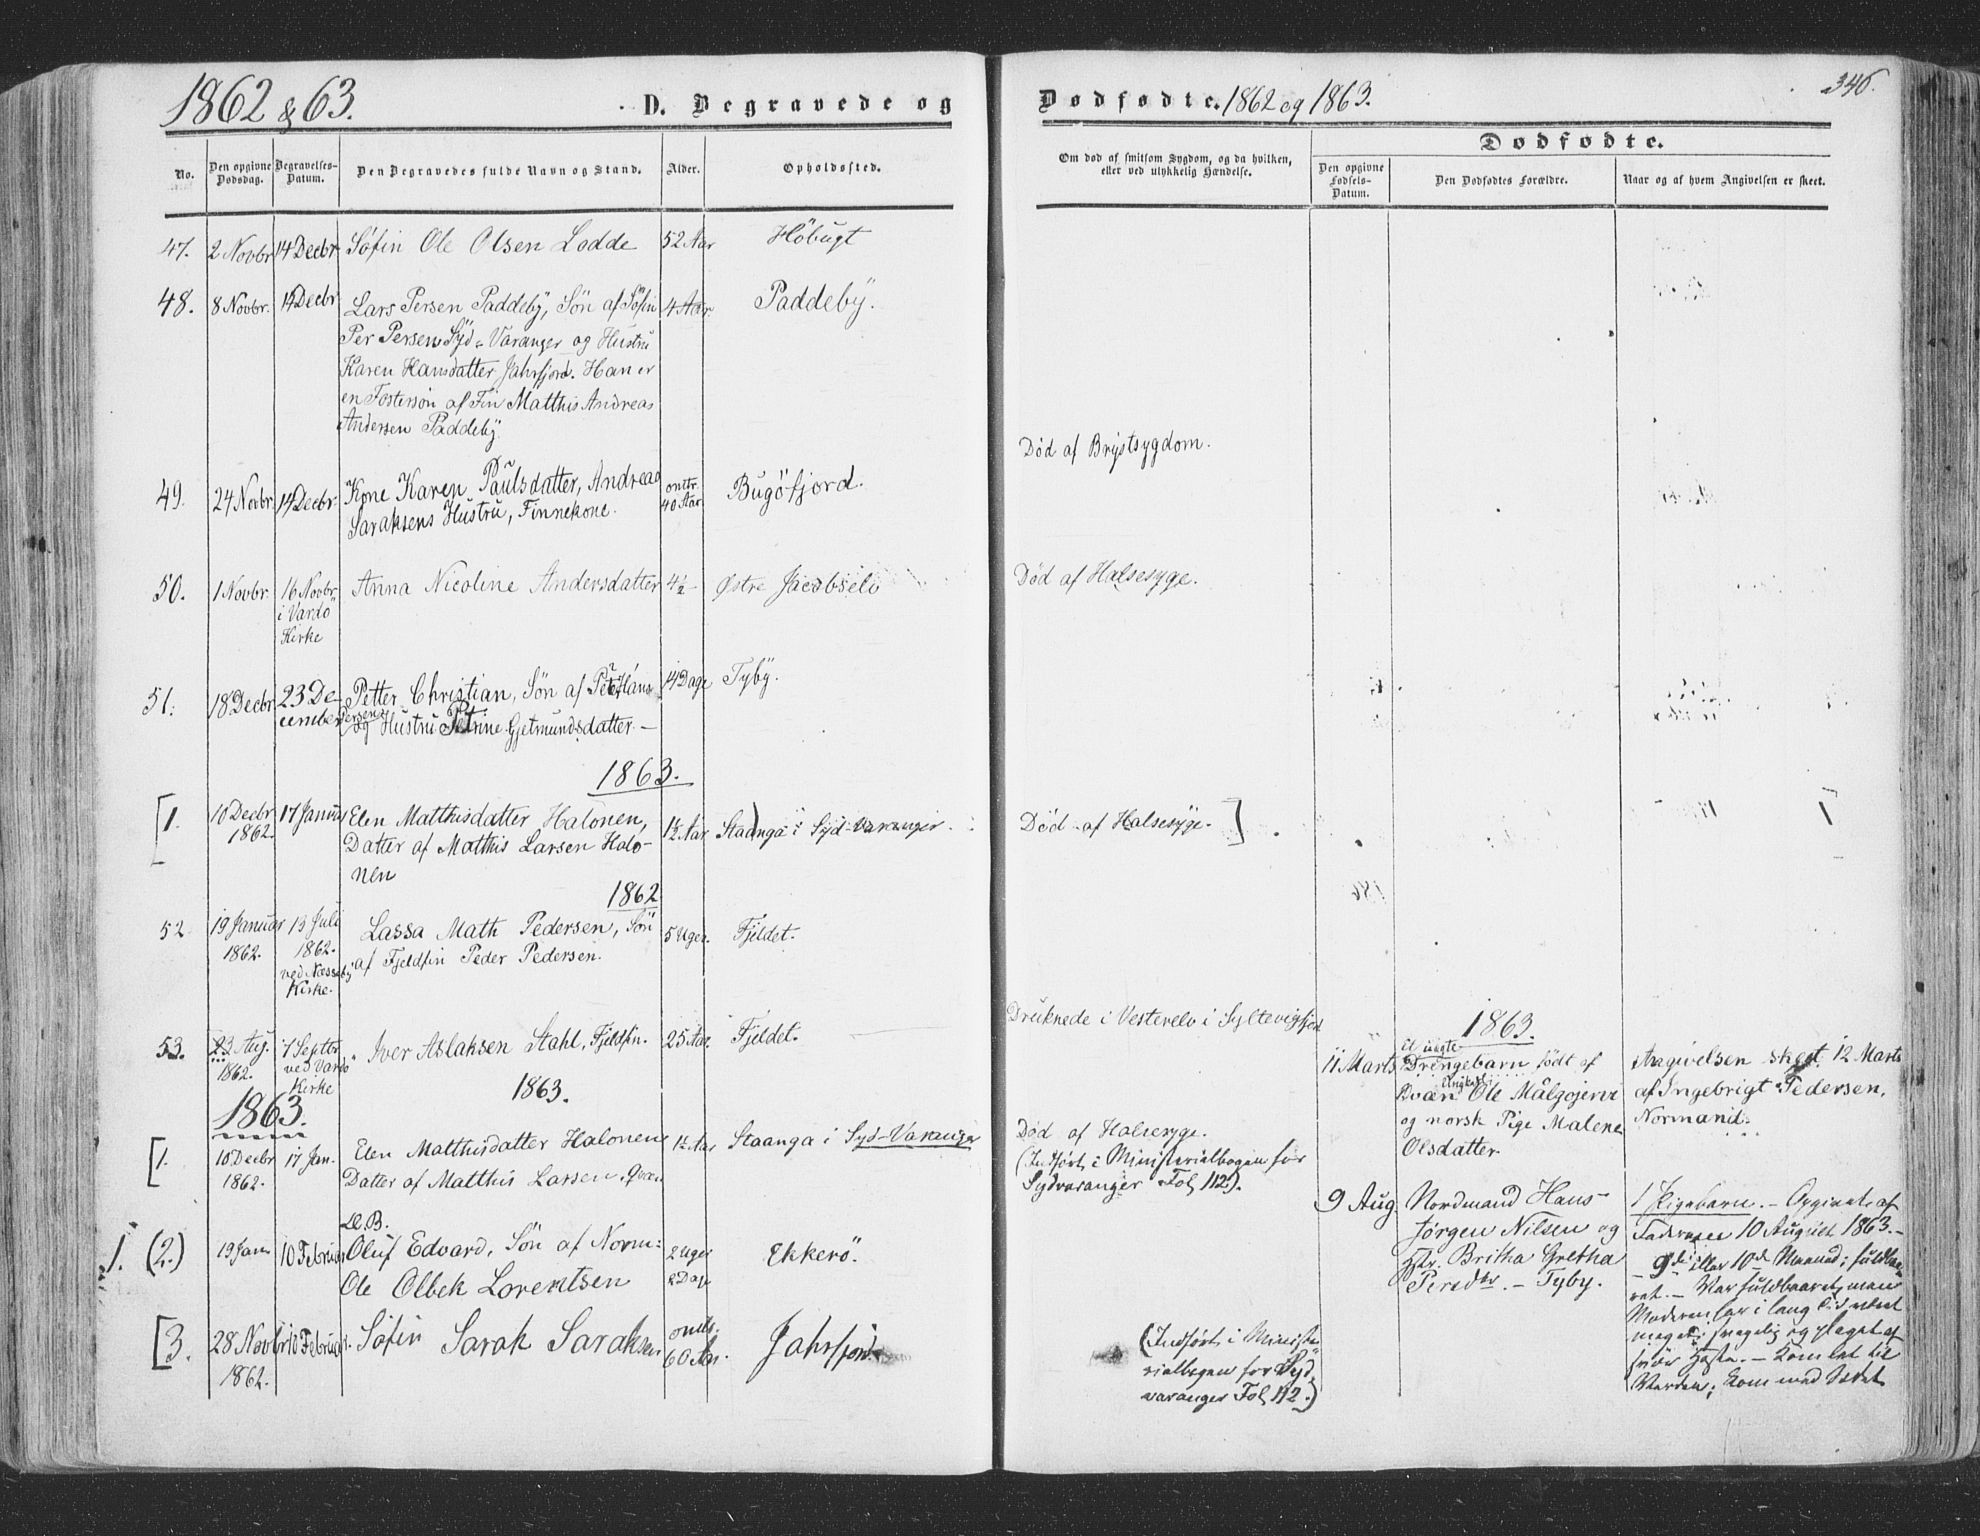 1862 & 63.
D. Begravede og
No.
Den opgivne Dødsdag.
Begravelses-Datum.
Den Begravedes fulde Navn og Stand.
Alder.
Opholdssted.
47. 2 Novbr 14 Decbr Søfin Ole Olsen Lodde 52 Aar Höbugt
48. 8 Novbr. 14 Decbr Lars Persen Paddeby, Søn af Søfin 4 Aar. Paddeby.
Per Persen Syd-Varanger og Hustru
Karen Hansdatter Jahrfjord. Han er
en Fostersön af Fin Matthis Andreas
Andersen Paddeby
49. 24 Novbr. 14 Decbr. Kone Karen Paulsdatter, Andreas omtr. 40 Aar Bugöfjord.
Saraksens Hustru, Finnekone.
50. 1 Novbr. 16 Novbr. Anna Nicoline Andersdatter 4½ Østre Jacobselv
i Vardö
Kirke
51. 18 Decbr 23 De- Petter Christian, Søn af Peter Hans 14 Dage Tyby.
cember Persen
og Hustru Petrine Gjetmundsdatter. —
1863.
[1. 10 Decbr 17 Januar Elen Matthisdatter Halonen, 1½ Aar Staanga i Syd-Varanger.
1862. Datter af Matthis Larsen Halo-
nen
1862
52 19 Januar 13 Juli Lassa Math Pedersen, Sön 5 Uger. Fjeldet.
1862. 1862. af Fjeldfin Peder Pedersen.
ved Næsseby
Kirke.
53. 23 Aug. 7 Septbr. Iver Aslaksen Stahl, Fjeldfin. 25 Aar. Fjeldet.
1862. ved Vardö
Kirke
1863.
1863.
[1. 10 Decbr 17 Jan. Elen Matthisdatter Halonen 1½ Aar Staanga i Syd-Varanger
1862. Datter af Matthis Larsen, Qvæn
D.B.
1. (2.) 19 Jan. 10 Februar Oluf Edvard, Sön af Norm: 2 Uger Ekkerö.
Ole Olbek Lorentsen 2 Dage
[3. 28 Novbr 10 Februar. Søfin Sarak Saraksen omtr. Jahrfjord.
1862. 60 Aar.
Dødfødte. 1862 og 1863.
346.
Om død af smitsom Sygdom, og da hvilken,
eller ved ulykkelig Hændelse.
Dødfødte.
Den opgivne Fødsels-Datum.
Den Dødfødtes Forældre.
Naar og af hvem Angivelsen er skeet.
Död af Brystsygdom.
Död af Halsesyge.
Död af Halsesyge. ]
Druknede i Vesterelv i Syltevigfjord
Död af Halsesyge.
(Indfört i Ministerialbogen for
Sydvaranger Fol 112).
(Indfört i Ministe
rialbogen for Syd
varanger Fol 112.)
1863.
11 Marts Et uægte
Drengebarn födt af
Ungkarl
Kvæn Ole Målgojervi
og norsk Pige Malene
Olsdatter.
Angivelsen skeet 12 Marts
af Ingebrigt Pedersen,
Normand.
9 Aug. Nordmand Hans
Jørgen Nilsen og
Hstr. Britha Gretha
Persdtr. — Tyby.
1 Pigebarn. — Opgivet af
Faderen 10 August 1863. —
9de eller 10de Maaned; fuldbaa-
ret. — Var fuldbaaret, men
Moderen lar i lang Tid været
meget svagelig og plaget af
svær Hoste. — Kom let til
Verden; kom med Sædet